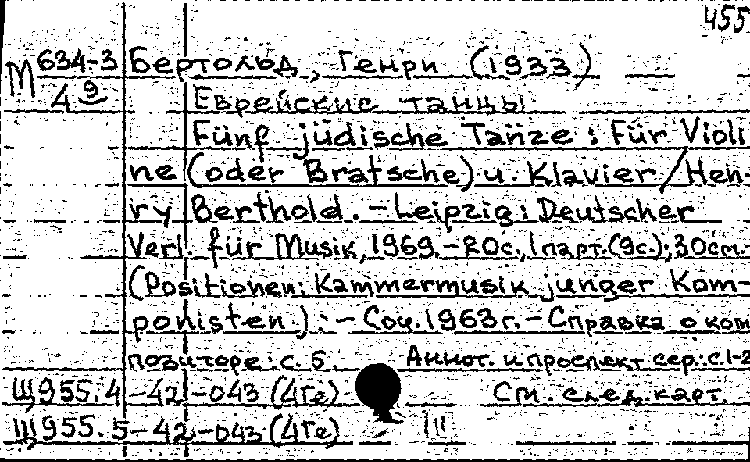 455
М 634-3 Бертольд, Генри (1933)
4 9 Еврейские танцы
Fünf jüdische Tänze : Für Violi-
ne (oder Bratsche) u. Klavier / Hen-
ry Berthold. - Leipzig : Deutscher
Verl. für Musik, 1969. - 20с., 1 парт.(9с.); 30см. -
(Positionen: Kammermusik junger Kom-
ponisten). - Соч. 1963г. - Справка о ком
позиторе: с. 5. Аннот. и проспект сер: с.1-2
Щ955.4-42-043 (4Ге) См. след. карт.
Щ955.5-42-043 (4Ге)